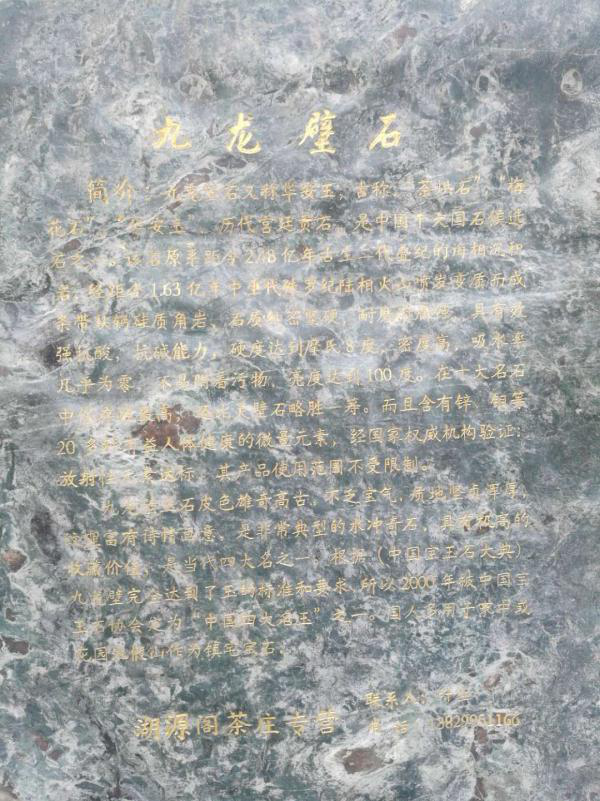 九龙壁石
简介：九龙壁石又称华安玉，古称：“茶烘石”、“梅
花石”，“华安玉”，历代宫廷贡石，是中国十大国石候选
石之一。该岩原系距今2.78亿年古生二代叠纪的海相沉积
岩，经距今1.63亿年中生代侏罗纪陆相火山喷发变质而成
条带状钙硅质角岩、石质致密坚硬，耐磨，具有效
强抗酸，抗碱能力，硬度达到摩氏8度，密度高，吸水率
几乎为零，不易附着污物，亮度达到100度。在十大名石
中硬度最高，灵璧石略胜一筹。而且含有锌、锶等
20多种有益人体健康的微量元素，经国家权威机构验证：
放射性元素达标，其产品使用范围不受限制。
九龙壁玉石皮色雄奇高古，不乏宝气，质地坚贞浑厚，
纹理富有诗情画意，是非常典型的水冲奇石，具有极高的
收藏价值，是当代四大名之一。根据（中国宝玉石大典）
九龙壁完全达到了玉的标准和要求，所以2000年被中国宝
玉石协会定为“中国四大名玉”之一。国人多用于家中或
花园造假山作为镇宅宝石。
联系人：
湖源阁茶庄专营 电话：13829951166